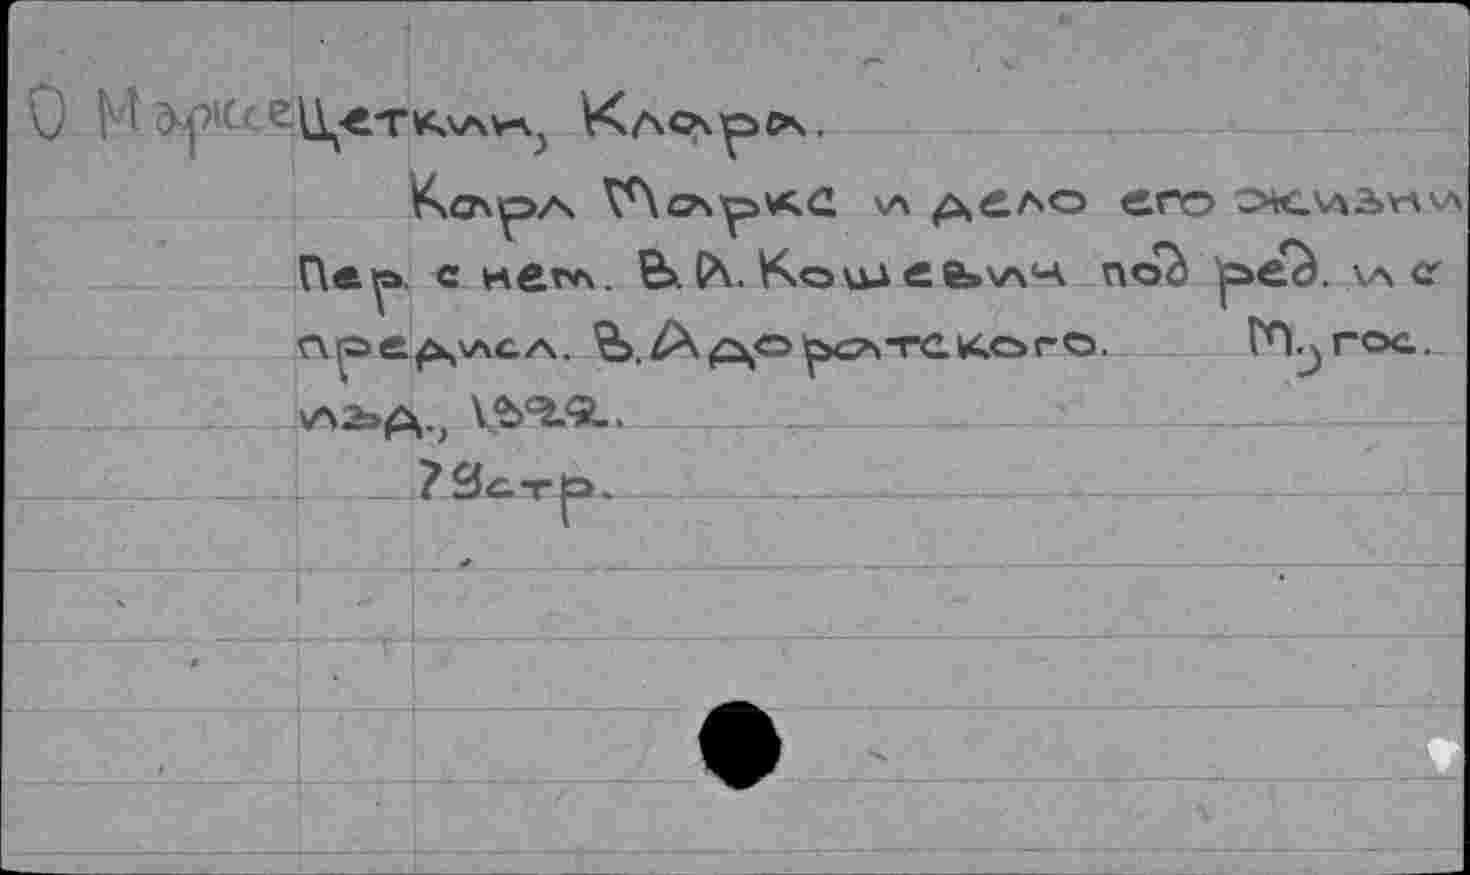 О Марксе Цеткин, Клара.
Карл Маркс и дело его жизни
Пер. с нем. В. А. Кошевич под ред. и с
предисл. В. Адоратского. М., гос.
изд., 1922.
78стр.